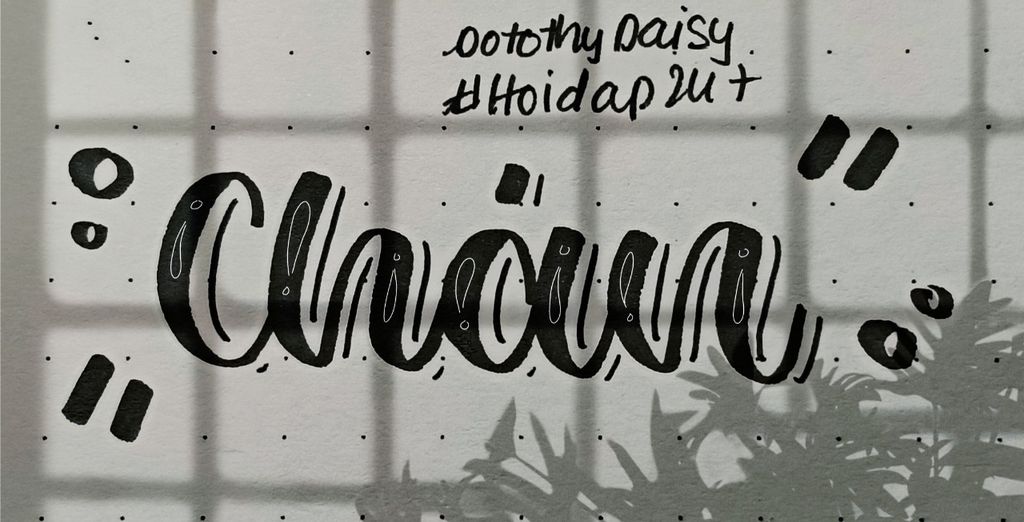 Dotothy Daisy
#Hoidap247
Chán